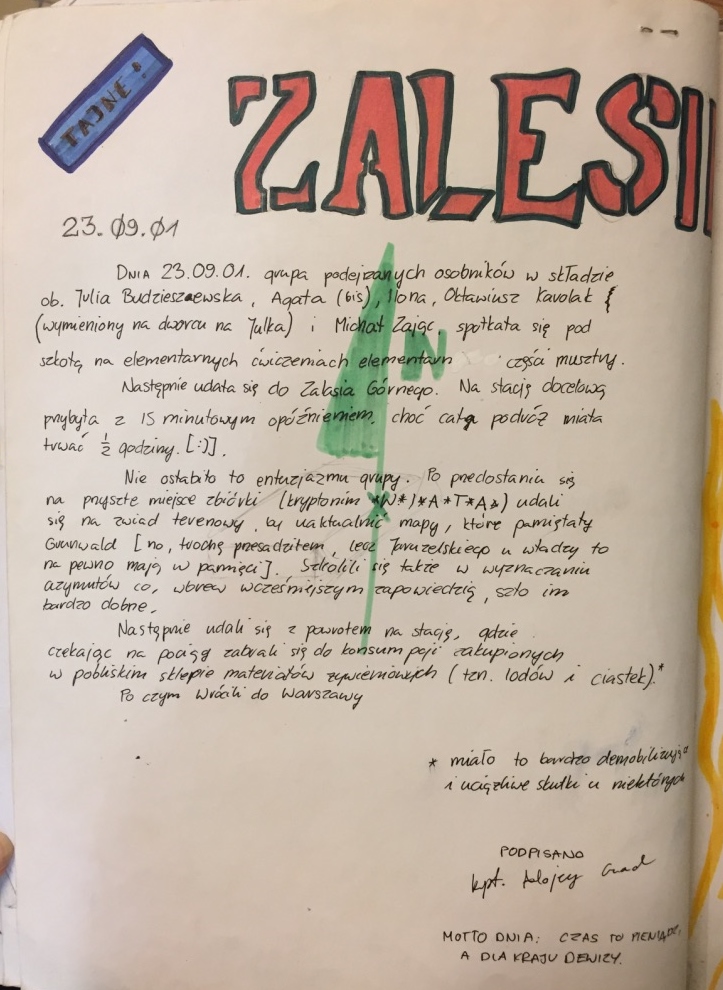 TAJNE!
ZALESI
23.09.01
DNIA 23.09.01. grupa podejrzanych osobników w składzie
ob. Julia Budzieszewska, Agata (bis), Ilona, Oktawiusz Kavolak
(wymieniony na dworcu na Julka) i Michał Zając, spotkała się pod
szkołą na elementarnych ćwiczeniach elementarn części musztry.
Następnie udała się do Zalesia Górnego. Na stację docelową
przybyła z 15 minutowym opóźnieniem, choć cała podróż miała
trwać ½ godziny. [:)].
Nie osłabiło to entuzjazmu grupy. Po przedostaniu się
na przyszłe miejsce zbiórki (kryptonim *W*)*A*T*A*) udali
się na zwiad terenowy by uaktualnić mapy, które pamiętały
Grunwald [no, trochę przesadziłem, lecz Jaruzelskiego u władzy to
na pewno mają w pamięci]. Szkolili się także w wyznaczaniu
azymutów co, wbrew wcześniejszym zapowiedzią, szło im
bardzo dobrze.
Następnie udali się z powrotem na stację, gdzie
czekając na pociąg zabrali się do konsumpcji zakupionych
w pobliskim sklepie materiałów żywieniowych (tzn. lodów i ciastek).*
Po czym wrócili do Warszawy
* miało to bardzo demobilizując
i uciążliwe skutki u niektórych
PODPISANO
kpt.
MOTTO DNIA: CZAS TO PIENIĄDZ,
A DLA KRAJU DEWIZY.
N